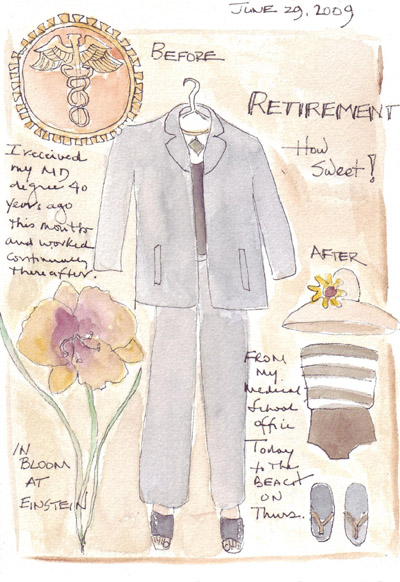 JUNE 29, 2009
BEFORE
RETIREMENT
How
Sweet!
I received
my MD
degree 40
years ago
this month
and worked
continuously
thereafter.
AFTER
FROM
My
Medical
School
office
Today
to the
BEACH
ON
Thurs.
IN
BLOOM
AT
EINSTEIN